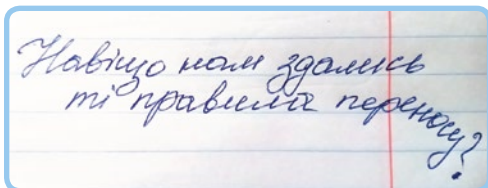 Навіщо нам здались
ті правила переносу?